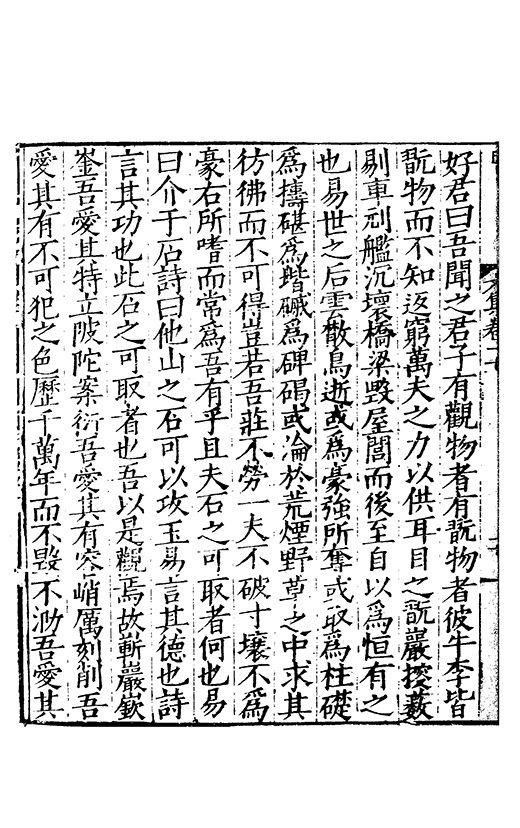 好君曰吾聞之君子有觀物者有翫物者彼牛李皆
翫物而不知返窮萬夫之力以供耳目之翫巖搜薮
剔車剜艦沉壞橋梁毀屋閭而後至自以爲恒有之
也易世之后雲散鳥逝或爲豪強所奪或取爲柱礎
爲擣碪爲堦磩爲碑碣或淪於荒煙野草之中求其
彷彿而不可得豈若吾莊不勞一夫不破寸壤不爲
豪右所嗜而常爲吾有乎且夫石之可取者何也易
曰介于石詩曰他山之石可以攻玉易言其德也詩
言其功也此石之可取者也吾以是觀焉故嶄巖嶔
崟吾愛其特立陂陀案衍吾愛其有容峭厲刻削吾
愛其有不可犯之色歷千萬年而不毀不泐吾愛其